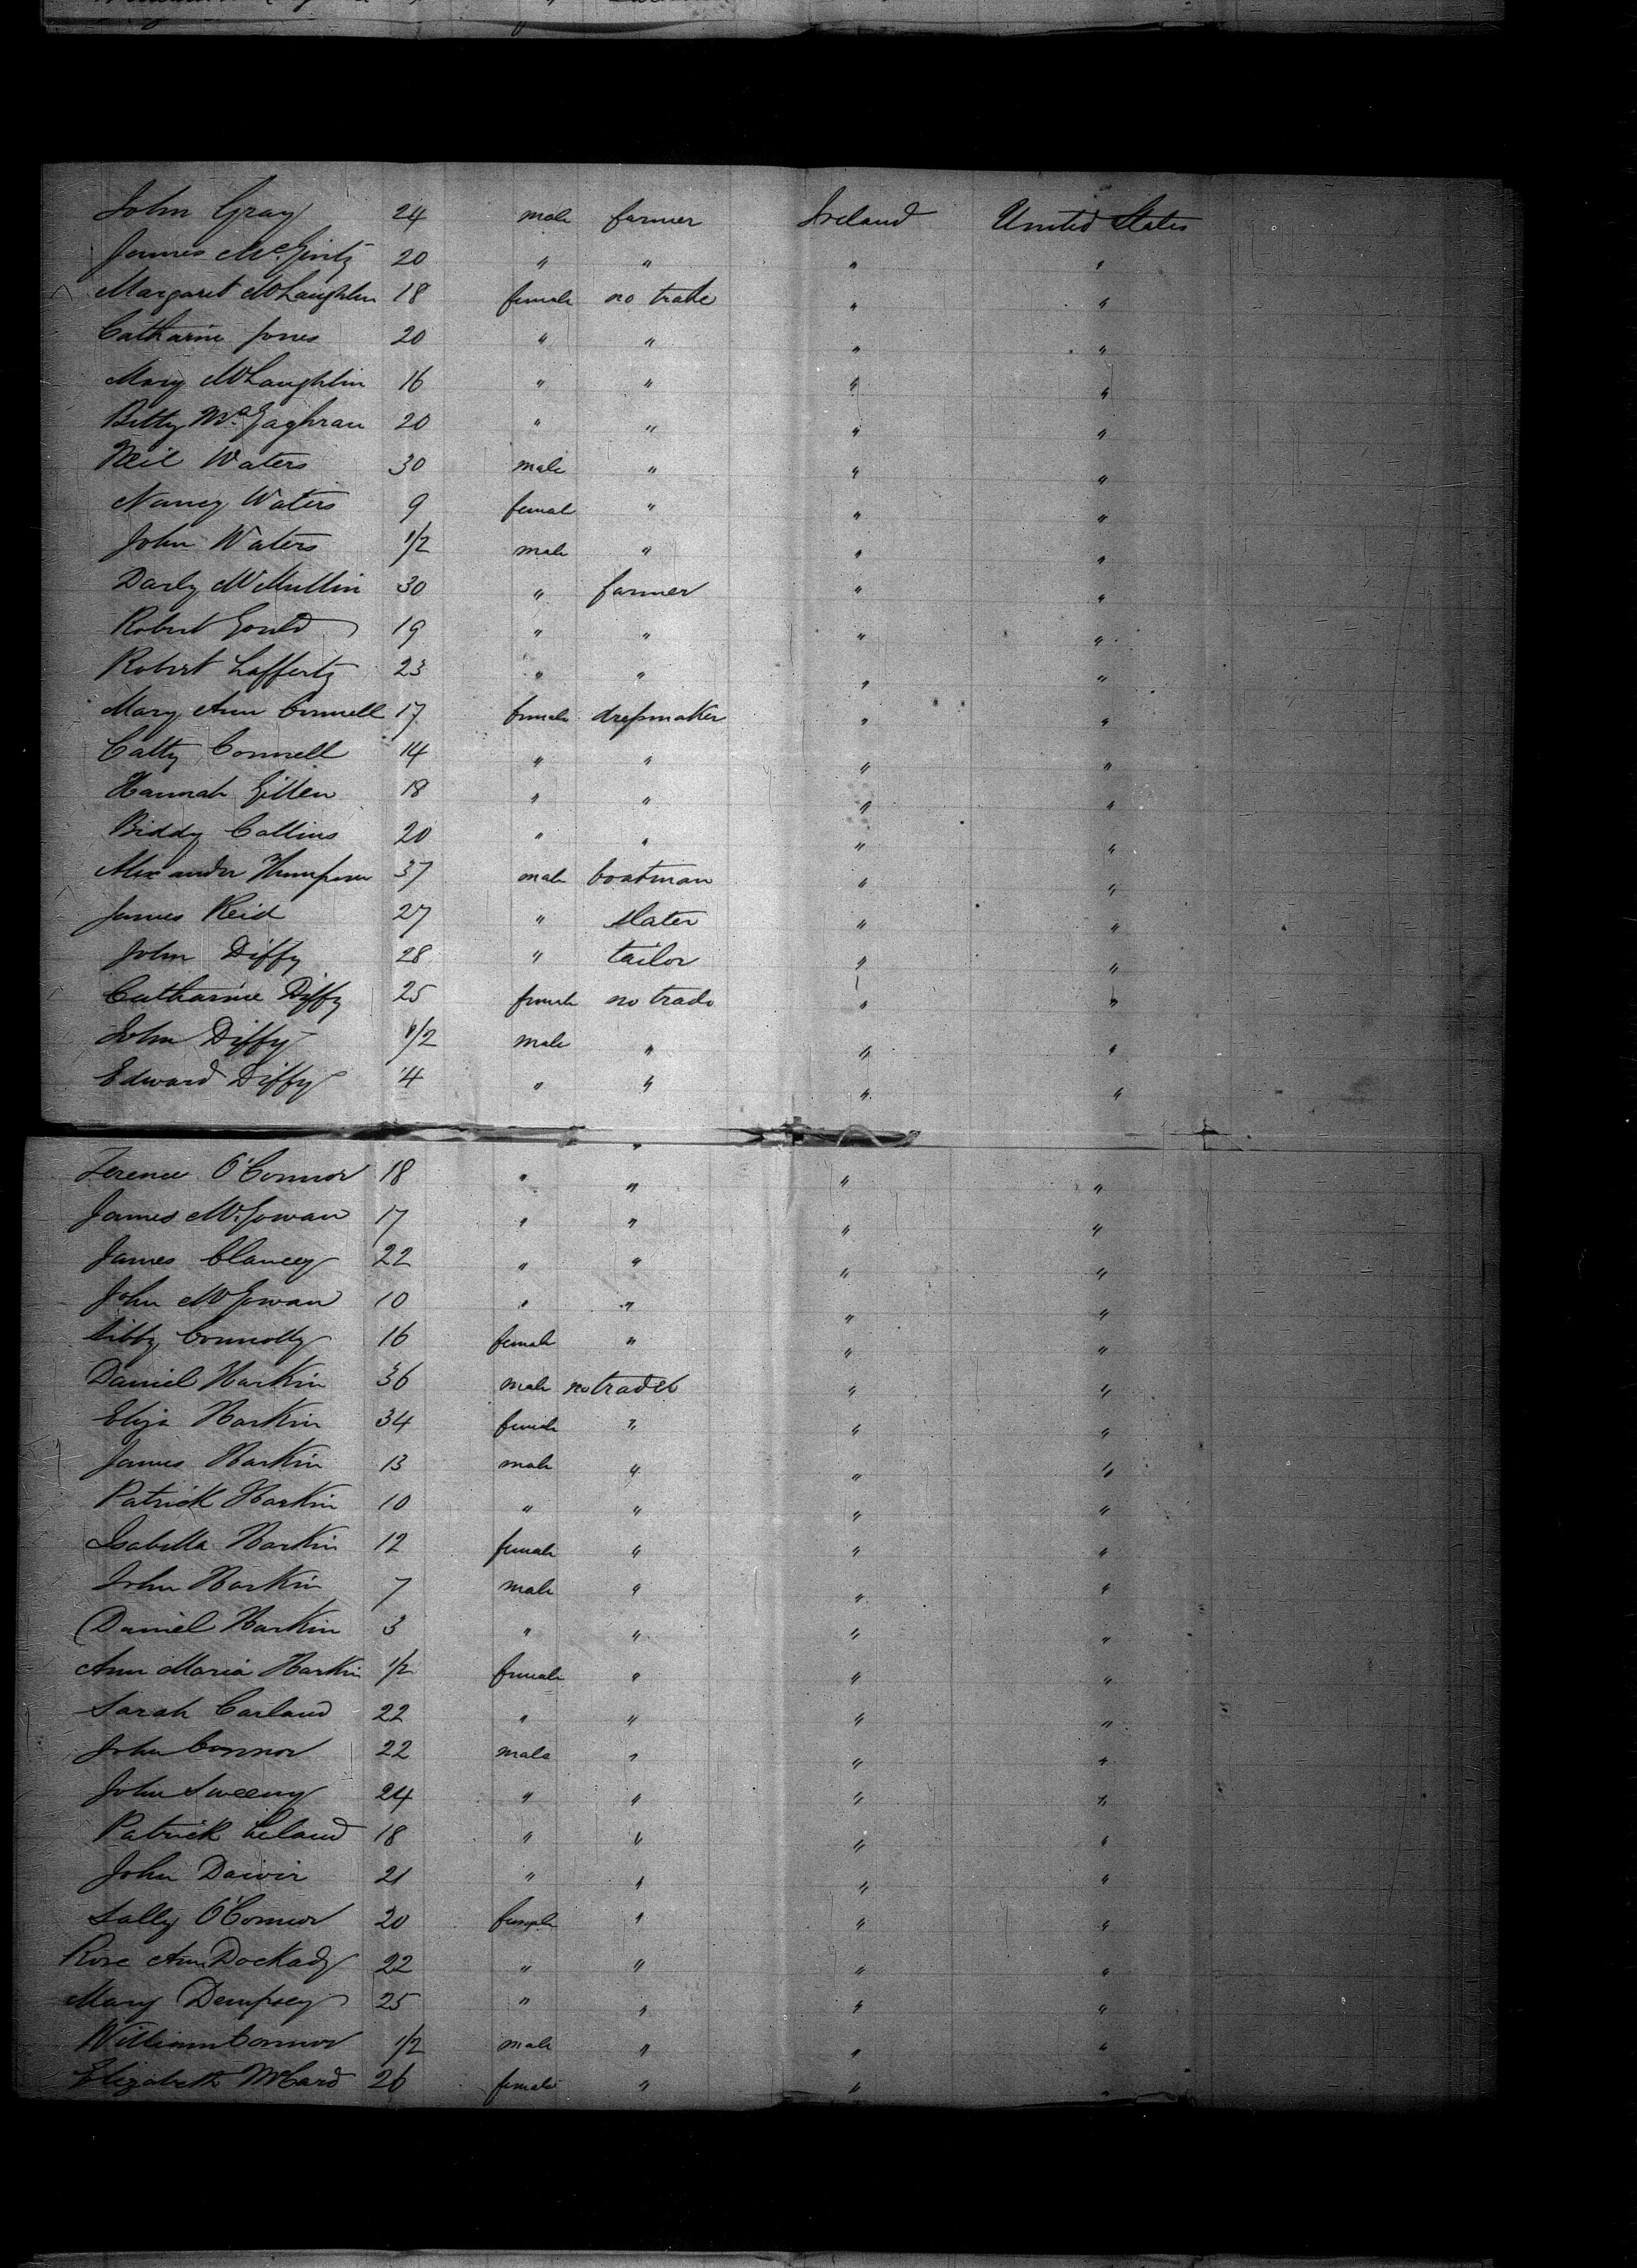 John Gray 24 male farmer Ireland United States
James McGinty 20 " " " "
Margaret McLaughlin 18 female no trade " "
Catharine Jones 20 " " " "
Mary McLaughlin 16 " " " "
Betty MaGaghran 20 " " " "
Neil Waters 30 male " " "
Nancy Waters 9 female " " "
John Waters 1/2 male " " "
Darly McMullin 30 " farmer " "
Robert Gould 19 " " " "
Robert Lafferty 23 " " " "
Mary Ann Connell 17 female dressmaker " "
Catty Connell 14 " " " "
Hannah Gillen 18 " " " "
Biddy Collins 20 " " " "
Alexander 37 male boatman " "
James Reid 27 " slater " "
John Diffy 28 " tailor " "
Catharine Diffy 25 female no trade " "
John Diffy 1/2 male " " "
Edward Diffy 4 " " " "
"
Terence O'Connor 18 " " " "
James McGowan 17 " " " "
James Clancey 22 " " " "
John McGowan 10 " " " "
Sibby Connolly 16 female " " "
Daniel Harkin 36 male no trade " "
Eliza Harkin 34 female " " "
James Harkin 13 male " " "
Patrick Harkin 10 " " " "
Isabella Harkin 12 female " " "
John Harkin 7 male " " "
Daniel Harkin 3 " " " "
Ann Maria Harkin 1/2 female " " "
Sarah Carland 22 " " " "
John Connor 22 male " " "
John Sweeny 24 " " " "
Patrick Leland 18 " " " "
John 21 " " " "
Sally O'Connor 20 female " " "
Rose Ann Dockady 22 " " " "
Mary Dempsey 25 " " " "
William Connor 1/2 male " " "
Elizabeth McCard 26 female " " "